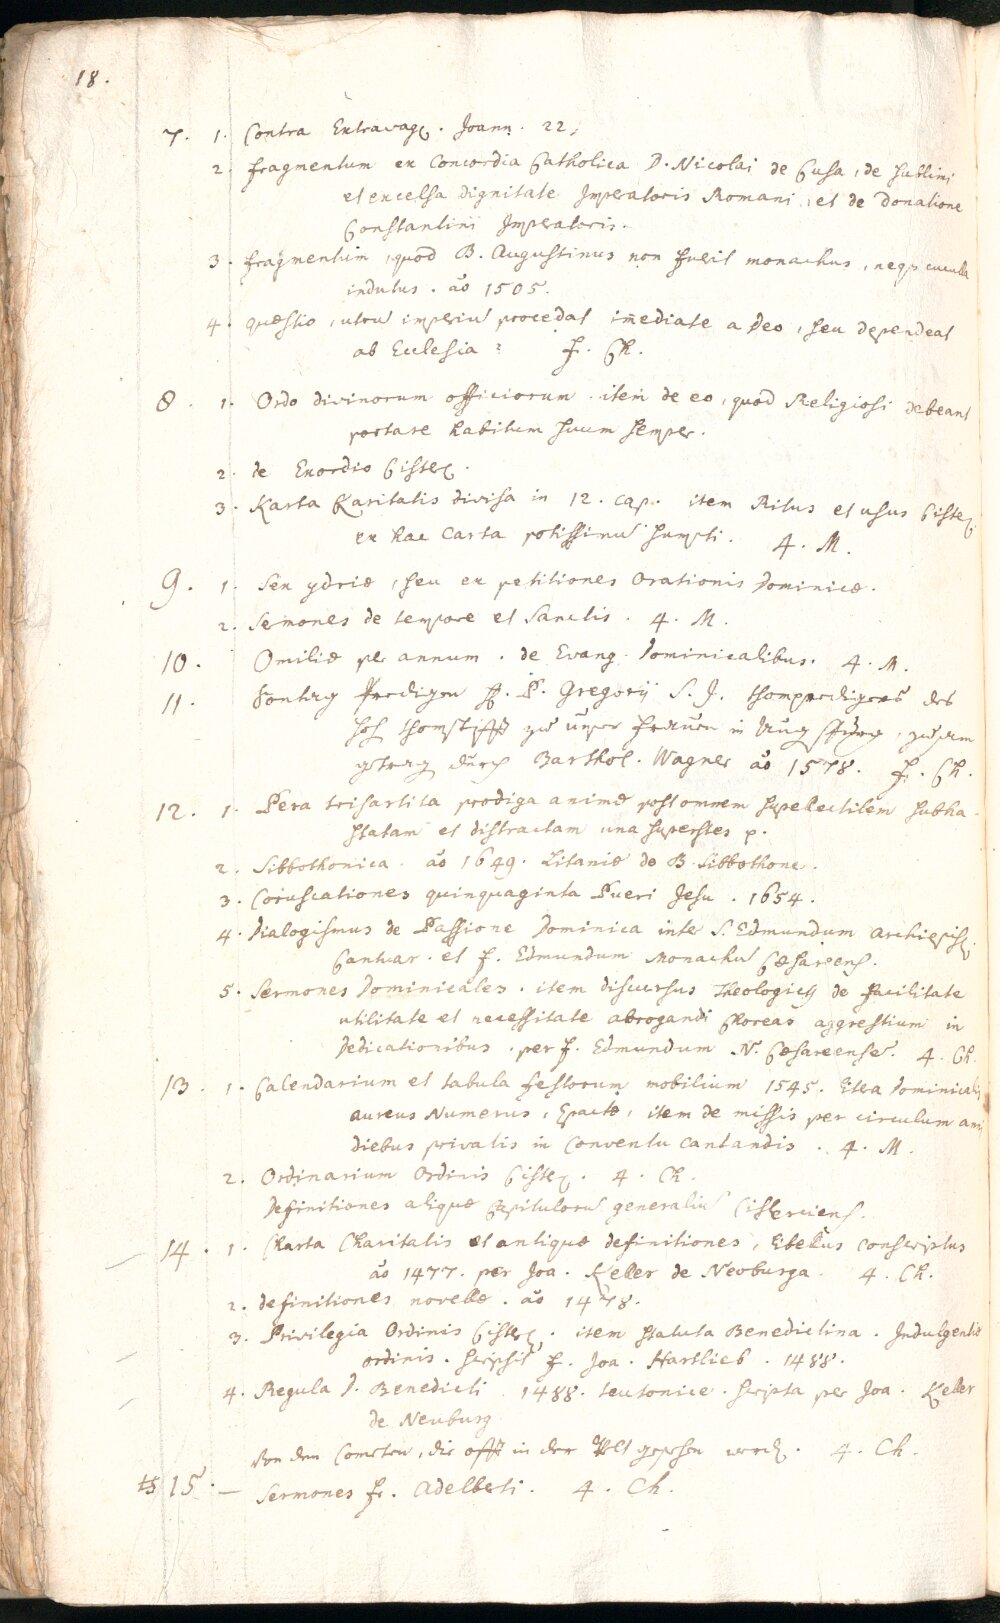 18.
7. 1. Contra Extravag. Joann. 22,
2. fragmentum ex Concordia Catholica D. Nicolai de Cusa, de sublimi
et excelsa dignitate Imperatoris Romani, et de Donatione
Constantini Imperatoris.
3. fragmentum, quod B. Augustinus non fuerit monachus, neqz cuculla
indutus. aõ 1505.
4. quæstio, utrũ imperiũ procedat im̃ediate a Deo, seu dependeat
ab Ecclesia? f. Ch.
8. 1. Ordo divinorum officiorum. item de eo, quod Religiosi debeant
portare habitum suum semper.
2. de Exordio Cisterc.
3. Karta Karitatis divisa in 12. cap. item Ritus et usus Cisterc.
ex hac Carta potissimũ sumpti. 4. M.
9. 1. Sex ydriæ, seu ex petitiones Orationis Dominicæ.
2. Sermones de tempore et Sanctis. 4. M.
10. Omiliæ per annum. de Evang. Dominicalibus. 4. M.
11. Sontag Predigen P. Gregorii S. J. thompredigers des
hoh thomstifft zu unser Frauen in Augspurg, zusam
getrag durch Barthol. Wagner aõ 1578. f. Ch.
12. 1. Pera trisartita prodiga animæ post omnem supellectilem subha-
statam et distractam una superstes p.
2. Sibbothonica. aõ 1649. Litaniæ de B. Sibbothone.
3. Coruscationes quinquaginta Pueri Jesu. 1654.
4. Dialogismus de Passione Dominica inter S. Edmundum Archiepisc.
Cantuar. et f. Edmundum Monachũ Cæsareens.
5. Sermones Dominicales. item discursus Theologicq de facilitate
utilitate et necessitate abrogandi Choreas aggrestium in
Dedicationibus. per f. Edmundum N. Cæsareense. 4. Ch.
13. 1. Calendarium et tabula festorum mobilium 1545. Litera Dominicalis
aureus Numerus, Epactæ, item de missis per circulum anni
diebus privatis in Conventu cantandis. 4. M.
2. Ordinarium Ordinis Cisterc. 4. Ch.
Definitiones aliquæ Capitulorũ generaliũ Cisterciens.
14. 1. Charta Charitatis et antiquæ definitiones, Libellus conscriptus
aõ 1477. per Joa. Keller de Neoburga. 4. Ch.
2. definitiones novellæ. aõ 1478.
3. Privilegia Ordinis Cisterc. item statuta Benedictina. Indulgentiæ
ordinis. scripsit f. Joa. Hartlieb. 1488.
4. Regula D. Benedicti 1488. teutonice. scripta per Joa. Keller
de Neuburg
Von den Cometen, die offt in der Welt gesehen werd. 4. Ch.
15. — Sermones fr. Adelberti. 4. Ch.